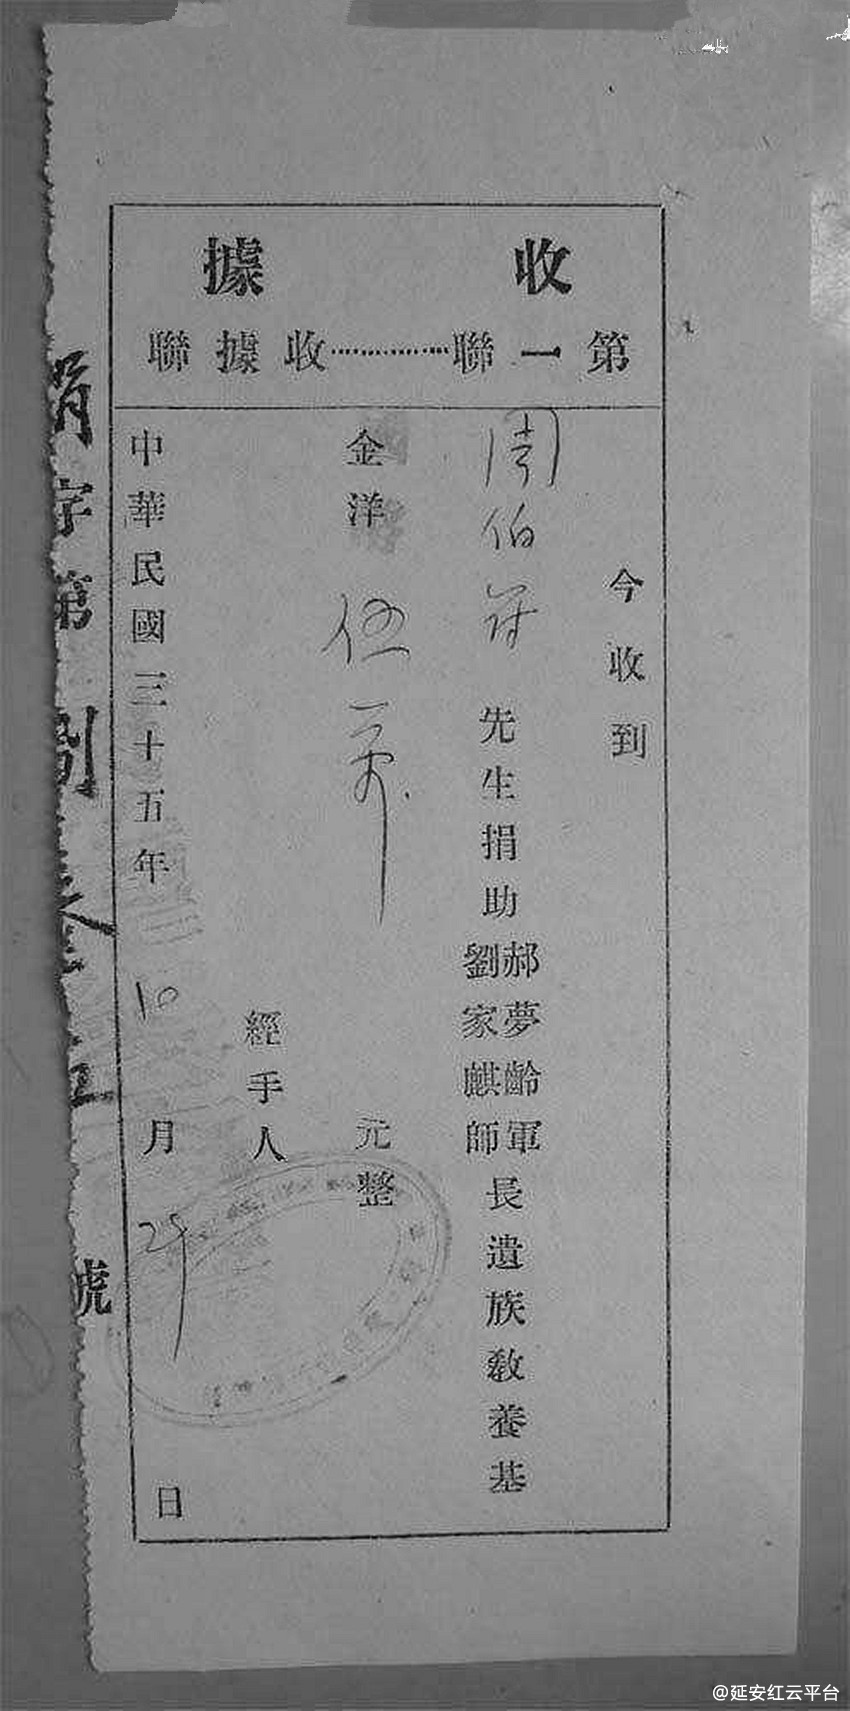 收據
第一聯⋯⋯⋯收據聯
今收到
周伯 先生捐助郝夢齡軍劉家麒師長遺族教養基
金洋 伍萬 元整
經手人
中華民國三十五年 10 月 29 日
捐字第捌 號
@延安红云平台